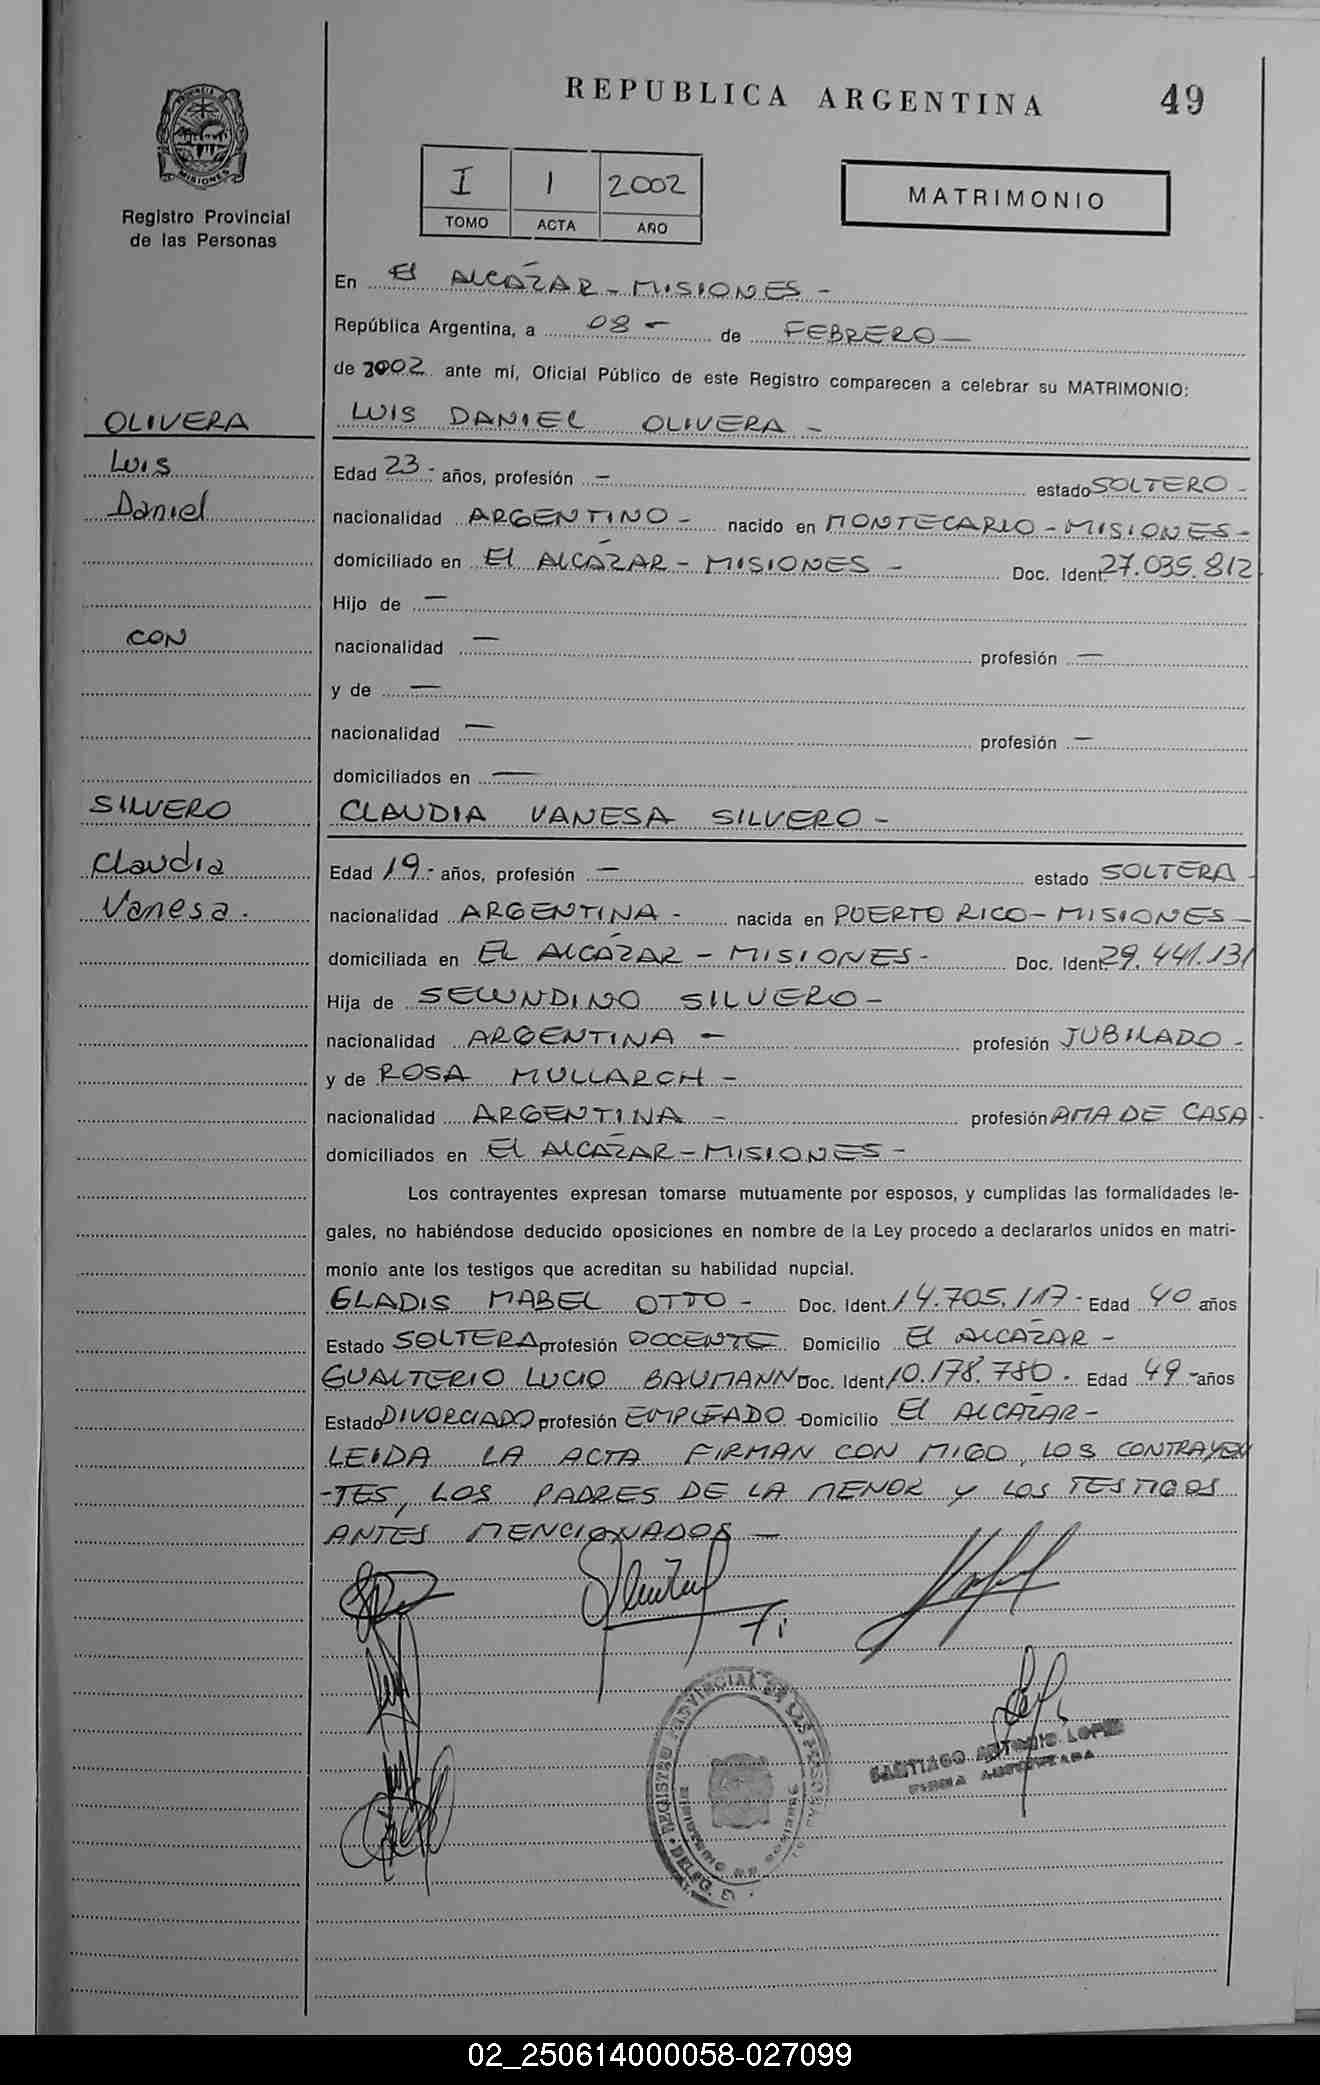 REPUBLICA ARGENTINA
49
PROVINCIA DE
MISIONES
Registro Provincial
de las Personas
I 1 2002
TOMO ACTA AÑO
MATRIMONIO
En El ALCAZAR - MISIONES -
República Argentina, a 08 - de FEBRERO -
de 2002 ante mí, Oficial Público de este Registro comparecen a celebrar su MATRIMONIO:
OLIVERA
Luis
Daniel
CON
SILVERO
Claudia
Vanesa.
LUIS DANIEL OLIVERA -
Edad 23 - años, profesión - estado SOLTERO -
nacionalidad ARGENTINO - nacido en MONTECARLO - MISIONES -
domiciliado en El ALCAZAR - MISIONES - Doc. Ident. 27.035.812
Hijo de -
nacionalidad - profesión -
y de -
nacionalidad - profesión -
domiciliados en -
CLAUDIA VANESA SILVERO -
Edad 19 - años, profesión - estado SOLTERA -
nacionalidad ARGENTINA - nacida en PUERTO RICO - MISIONES -
domiciliada en EL ALCAZAR - MISIONES - Doc. Ident. 29.441.131
Hija de SECUNDINO SILVERO -
nacionalidad ARGENTINA - profesión JUBILADO -
y de ROSA MULLARCH -
nacionalidad ARGENTINA - profesión AMA DE CASA -
domiciliados en El ALCAZAR - MISIONES -
Los contrayentes expresan tomarse mutuamente por esposos, y cumplidas las formalidades le-
gales, no habiéndose deducido oposiciones en nombre de la Ley procedo a declararlos unidos en matri-
monio ante los testigos que acreditan su habilidad nupcial.
GLADIS MABEL OTTO - Doc. Ident. 14.705.117 - Edad 40 años
Estado SOLTERA profesión DOCENTE Domicilio El ALCAZAR -
GUALTERIO LUCIO BAUMANN Doc. Ident 10.178.780. Edad 49 - años
Estado DIVORCIADO profesión EMPLEADO - Domicilio El ALCAZAR -
LEIDA LA ACTA FIRMAN CON MIGO, LOS CONTRAYEN
-TES, LOS PADRES DE LA MENOR Y LOS TESTIGOS
ANTES MENCIONADOS -
REGISTRO PROVINCIAL DE LAS PERSONAS
SANTIAGO ANTONIO LOPEZ
FIRMA AUTORIZADA
02_250614000058-027099